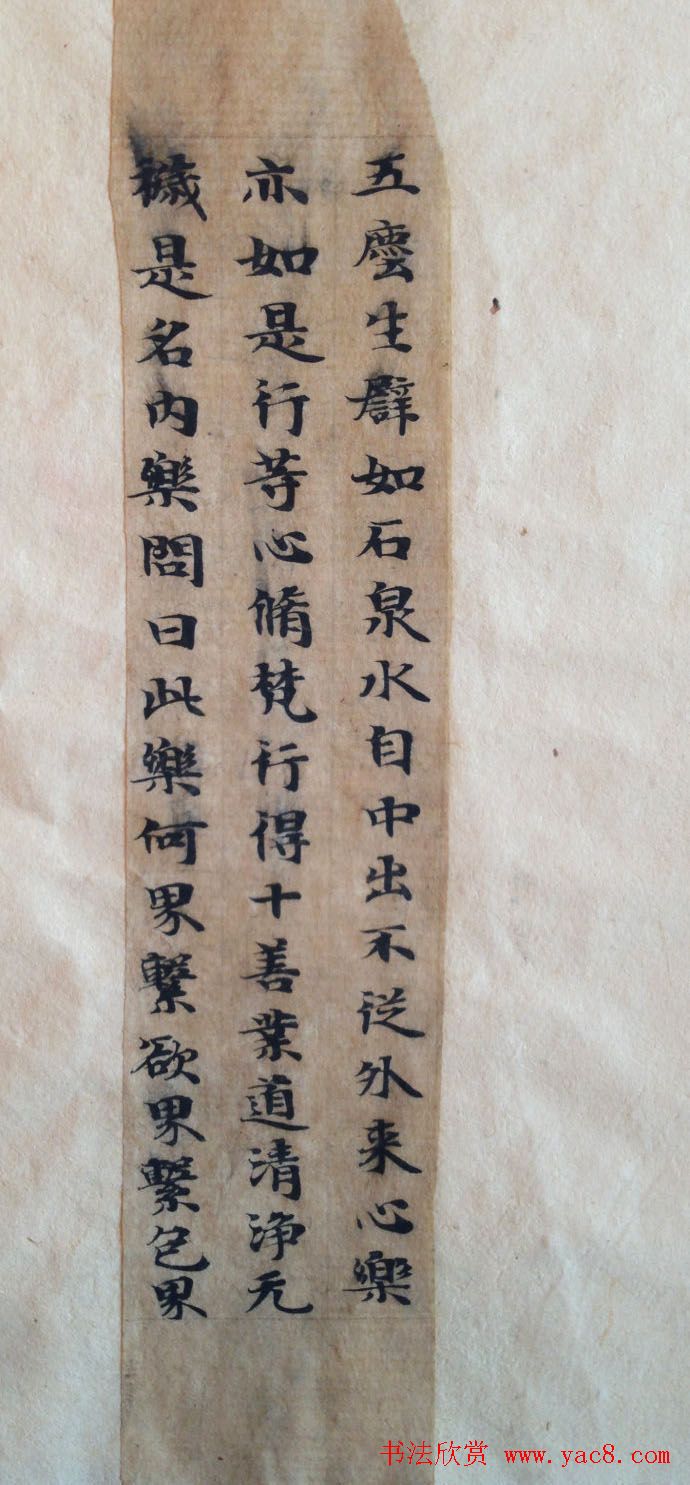 五塵生譬如石泉水自中出不從外来心樂
亦如是行等心脩梵行得十善業道清淨无
穢是名內樂問曰此樂何界繫欲界繫色界
书法欣赏 www.yac8.com